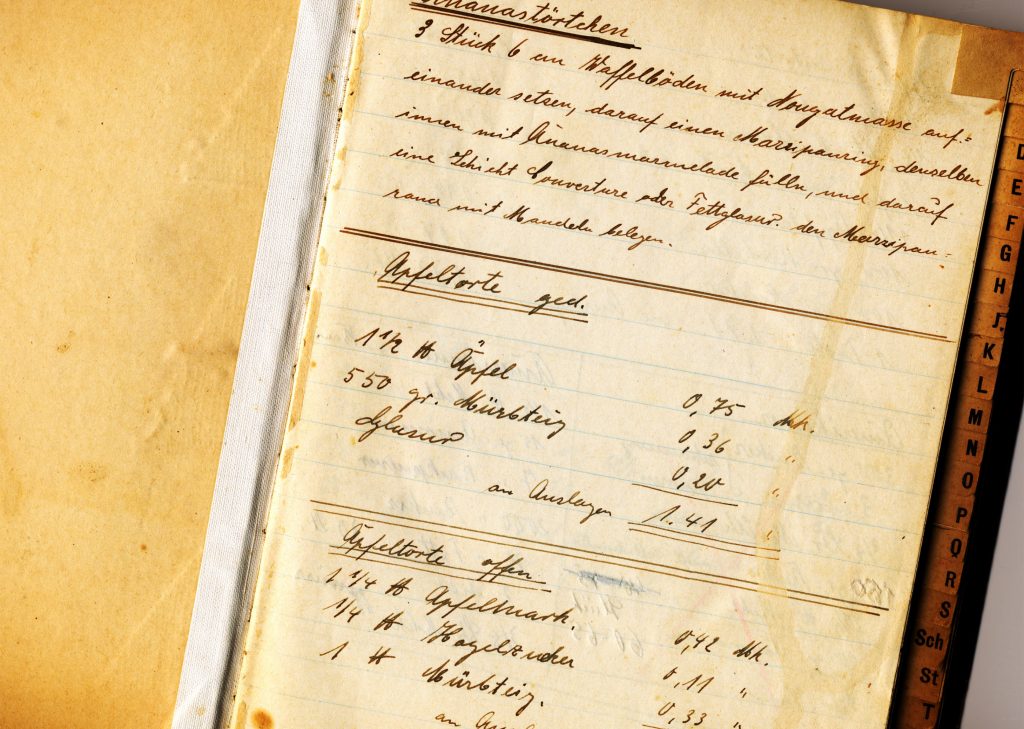 Ananastörtchen
3 Stück 6 cm Waffelböden mit Nougatmasse auf=
einander setzen, darauf einen Marzipanring, denselben
innen mit Ananasmarmelade fülln, und darauf
eine Schicht Couverture oder Fettglasur. den Marzipan-
rand mit Mandeln belegen.
Äpfeltorte ged.
1 1/2 ℔ Äpfel 0,75 Mk.
550 gr. Mürbteig 0,36 "
Glasur 0,20 "
an Auslagen 1.41 "
Äpfeltorte offen
1 1/4 ℔ Apfelmark. 0,42 Mk.
1/4 ℔ Hagelzucker 0,11 "
1 ℔ Mürbteig. 0,33 "
an
D
E
F
G
H
J.
K
L
M
N
O
P
Q
R
S
Sch
St
T